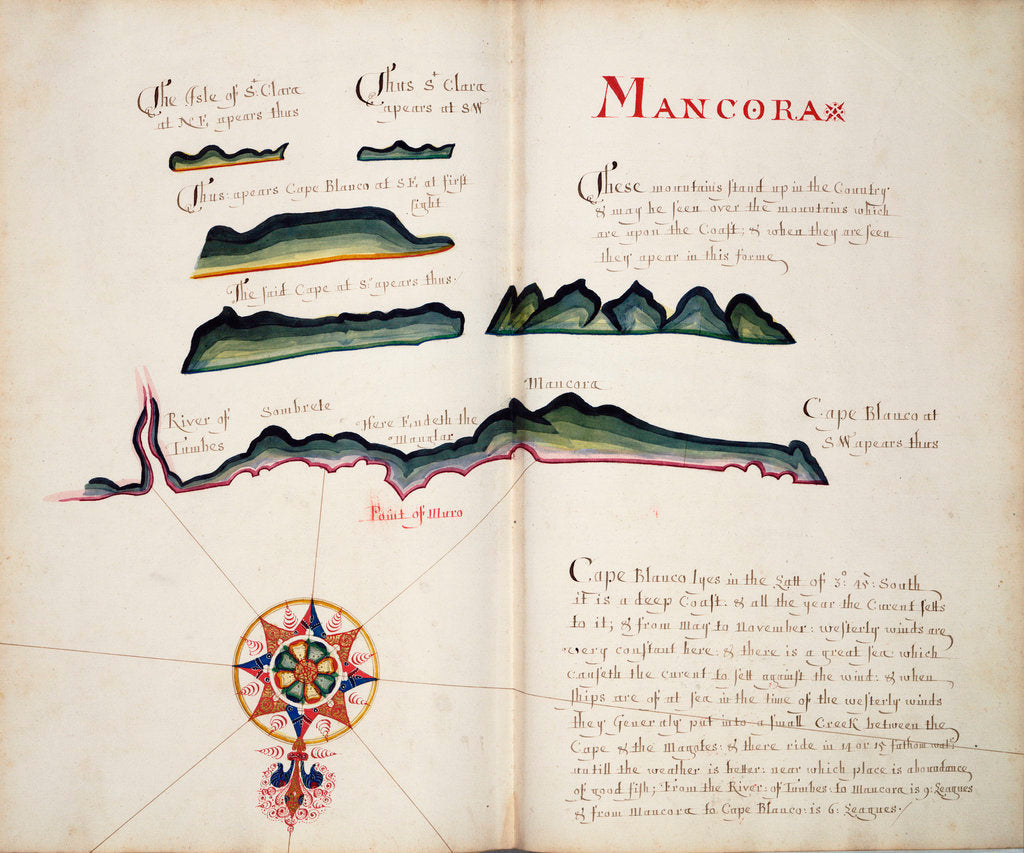 The Isle of St Clara
at N.E. apears thus
Thus St Clara
apears at SW
Thus: apears Cape Blanco at S.E. at first
sight
The said Cape at S: apears thus.
River of
Tumbes
Sombrete
Here Endeth the
Manglar
Point of Muro
MANCORA
These mountains stand up in the Country
& may be seen over the mountains which
are upon the Coast; & when they are seen
they apear in this forme
Mancora
Cape Blanco at
SW apears thus
Cape Blanco lyes in the Latt of 3°: 45: South
it is a deep Coast. & all the year the Curent setts
to it; & from May to November: westerly winds are
very constant here: & there is a great sea which
causeth the curent to sett against the wind: & when
ships are of at sea in the time of the westerly winds
they Generaly put into a small Creek between the
Cape & the Magotes: & there ride in 14 or 15 fathom wat:
untill the weather is better: near which place is aboundance
of good fish; From the River: of Tumbes: to Mancora is 9: Leagues
& from Mancora to Cape Blanco: is 6: Leagues: